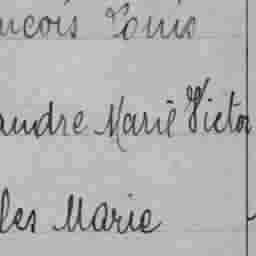 ncois Louis
andre Marie Victor
les Marie